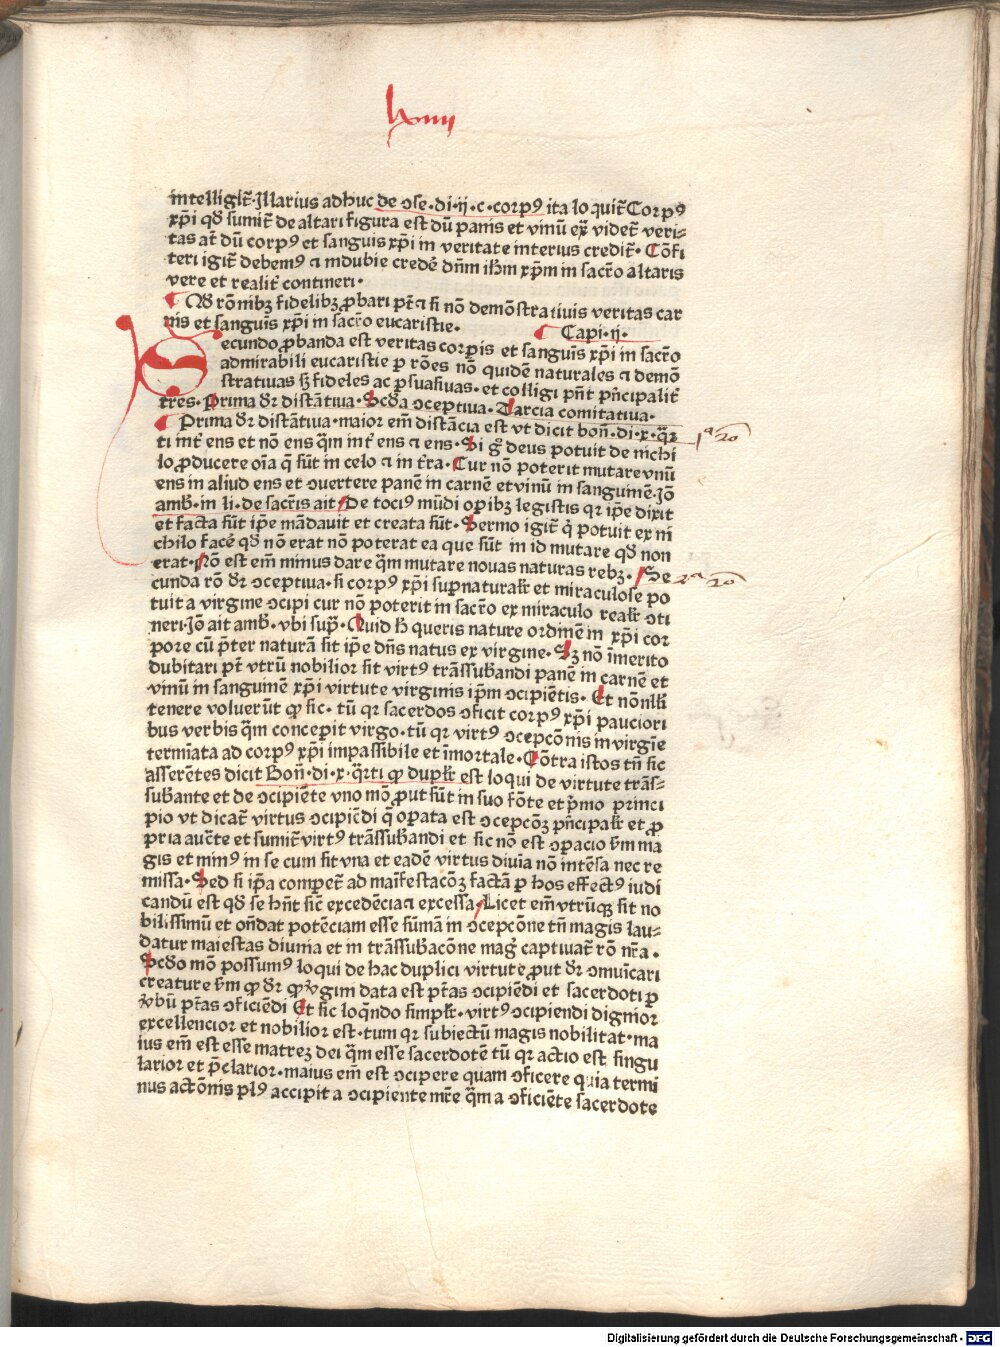 lxiiii
intelligit̃·Illarius adhuc de ↄse·di·ij·c·corpꝰ ita loquit̃ Corpꝰ
xp̃i qd̃ sumit̃ de altari figura est dũ panis et vinũ ex̃ videt̃ veri⸗
tas at̃ dũ corpꝰ et sanguis xp̃i in veritate interius credit̃· Cõfi
teri igit̃ debemꝰ ⁊ indubie crede᷑ dñm ihm̃ xp̃m in sacr̃o altaris
vere et realit̃ contineri·
Qd̃ rõnibꝫ fidelibꝫ ꝓbari pt̃ ⁊ si nõ demõstratiuis veritas car
nis et sanguis xp̃i in sacr̃o eucaristie·
Capi·ij·
Secundo ꝓbanda est veritas corpis et sanguis xp̃i in sacr̃o
admirabili eucaristie p rões nõ quidẽ naturales ⁊ demõ
stratiuas sꝫ fideles ac psuasiuas· et colligi pñt pñcipalit̃
tres· Prima dr̃ distãtiua· Scd̃a ↄceptiua· Tarcia comitatiua·
Prima dr̃ distãtiua·maior em̃ distãcia est vt dicit boñ·di·x·q̃r
1ª rõ
ti int̃ ens et nõ ens q̃m int̃ ens ⁊ ens· Si gͦ deus potuit de nichi
lo ꝓducere oĩa q̃ sũt in celo ⁊ in t̃ra· Cur nõ poterit mutare vnũ
ens in aliud ens et ↄuertere panẽ in carnẽ et vinũ in sanguinẽ·Iõ
amb̃·in li·de sacr̃is ait De tociꝰ mũdi opibꝫ legistis qr ip̃e dixit
et facta sũt ip̃e mãdauit et creata sũt· Sermo igit̃ q̇ potuit ex ni
chilo face᷑ qd̃ nõ erat nõ poterat ea que sũt in id mutare qd̃ non
erat· Nõ est em̃ minus dare q̃m mutare nouas naturas rebꝫ· Se
2ª rõ
cunda rõ dr̃ ↄceptiua·si corpꝰ xp̃i supnatural̃r et miraculose po
tuit a virgine ↄcipi cur nõ poterit in sacr̃o ex miraculo real̃r ↄti
neri·Iõ ait amb̃·vbi sup̃· Quid h̃ queris nature ordinẽ in xp̃i cor
pore cũ p̃ter naturã sit ip̃e dñs natus ex virgine· Sꝫ nõ ĩmerito
dubitari pt̃ vtrũ nobilior sit virtꝰ trãssub̃andi panẽ in carnẽ et
vinũ in sanguinẽ xp̃i virtute virginis ip̃m ↄcipiẽtis· Et nõnll̃i
tenere voluerũt ꝙ sic· tũ qr sacerdos ↄficit corpꝰ xp̃i pauciori
bus verbis q̃m concepit virgo·tũ qr virtꝰ ↄcepcõnis in virgĩe
termĩata ad corpꝰ xp̃i impassibile et ĩmortale· Cõtra istos tñ sic
asserẽtes dicit Boñ·di·x·q̃rti ꝙ dupl̃r est loqui de virtute trãs⸗
sub̃ante et de ↄcipiẽte vno mõ ꝓut sũt in suo fõte et p̃mo princi
pio vt dicat̃ virtus ↄcipiẽdi q̃ opata est ↄcepcõꝫ pñcipal̃r et ꝓ
pria auc̃te et sumit̃ virtꝰ trãssub̃andi et sic nõ est ↄpacio s̃m ma
gis et minꝰ in se cum sit vna et eadẽ virtus diuĩa nõ intẽsa nec re
missa· Sed si ip̃a compet̃ ad maĩfestacõꝫ factã p hos effectꝰ iudi
candũ est qd̃ se hñt sic̃ excedẽcia ⁊ excessa· Licet em̃ vtrũqꝫ sit no
bilissimũ et oñdat potẽciam esse sũmã in ↄcepcõne tñ magis lau⸗
datur maiestas diuina et in trãssub̃acõne magͥ captiuat̃ rõ nr̃a·
Scd̃o mõ possumꝰ loqui de hac duplici virtute ꝓut dr̃ ↄmuĩcari
creature s̃m ꝙ dr̃ ꝙ v̓gini data est pt̃as ↄcipiẽdi et sacerdoti p
v̓bũ pt̃as ↄficiẽdi Et sic loq̃ndo simpl̃r· virtꝰ ↄcipiendi dignior
excellencior et nobilior est·tum qr subiectũ magis nobilitat·ma
ius em̃ est esse matreꝫ dei q̃m esse sacerdotẽ tũ qr actio est singu
larior et p̃clarior·maius em̃ est ↄcipere quam ↄficere quia termi
nus actõnis plꝰ accipit a ↄcipiente mr̃e q̃m a ↄficiẽte sacerdote
Digitalisierung gefördert durch die Deutsche Forschungsgemeinschaft - DFG